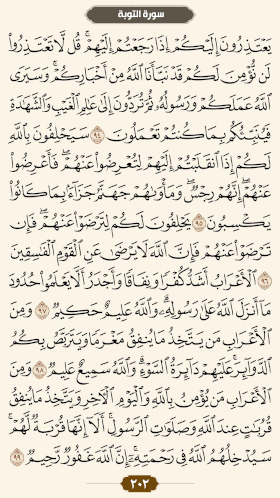 سورة التوبة
يَعْتَذِرُونَ إِلَيْكُمْ إِذَا رَجَعْتُمْ إِلَيْهِمْ ۚ قُل لَّا تَعْتَذِرُوا
لَن نُّؤْمِنَ لَكُمْ قَدْ نَبَّأَنَا اللَّهُ مِنْ أَخْبَارِكُمْ ۚ وَسَيَرَى
اللَّهُ عَمَلَكُمْ وَرَسُولُهُ ثُمَّ تُرَدُّونَ إِلَىٰ عَالِمِ الْغَيْبِ وَالشَّهَادَةِ
فَيُنَبِّئُكُم بِمَا كُنتُمْ تَعْمَلُونَ ٩٤ سَيَحْلِفُونَ بِاللَّهِ
لَكُمْ إِذَا انقَلَبْتُمْ إِلَيْهِمْ لِتُعْرِضُوا عَنْهُمْ ۖ فَأَعْرِضُوا
عَنْهُمْ ۖ إِنَّهُمْ رِجْسٌ ۖ وَمَأْوَاهُمْ جَهَنَّمُ جَزَاءً بِمَا كَانُوا
يَكْسِبُونَ ٩٥ يَحْلِفُونَ لَكُمْ لِتَرْضَوْا عَنْهُمْ ۖ فَإِن
تَرْضَوْا عَنْهُمْ فَإِنَّ اللَّهَ لَا يَرْضَىٰ عَنِ الْقَوْمِ الْفَاسِقِينَ
٩٦ الْأَعْرَابُ أَشَدُّ كُفْرًا وَنِفَاقًا وَأَجْدَرُ أَلَّا يَعْلَمُوا حُدُودَ
مَا أَنزَلَ اللَّهُ عَلَىٰ رَسُولِهِ ۗ وَاللَّهُ عَلِيمٌ حَكِيمٌ ٩٧ وَمِنَ
الْأَعْرَابِ مَن يَتَّخِذُ مَا يُنفِقُ مَغْرَمًا وَيَتَرَبَّصُ بِكُمُ
الدَّوَائِرَ ۚ عَلَيْهِمْ دَائِرَةُ السَّوْءِ ۗ وَاللَّهُ سَمِيعٌ عَلِيمٌ ٩٨ وَمِنَ
الْأَعْرَابِ مَن يُؤْمِنُ بِاللَّهِ وَالْيَوْمِ الْآخِرِ وَيَتَّخِذُ مَا يُنفِقُ
قُرُبَاتٍ عِندَ اللَّهِ وَصَلَوَاتِ الرَّسُولِ ۚ أَلَا إِنَّهَا قُرْبَةٌ لَّهُمْ ۚ
سَيُدْخِلُهُمُ اللَّهُ فِي رَحْمَتِهِ ۗ إِنَّ اللَّهَ غَفُورٌ رَّحِيمٌ ٩٩
٢٠٢